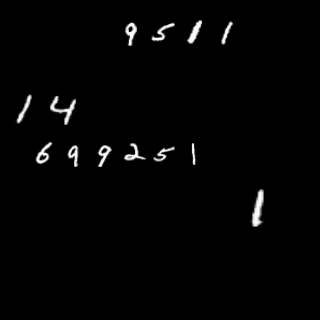 9511
14
699251
1